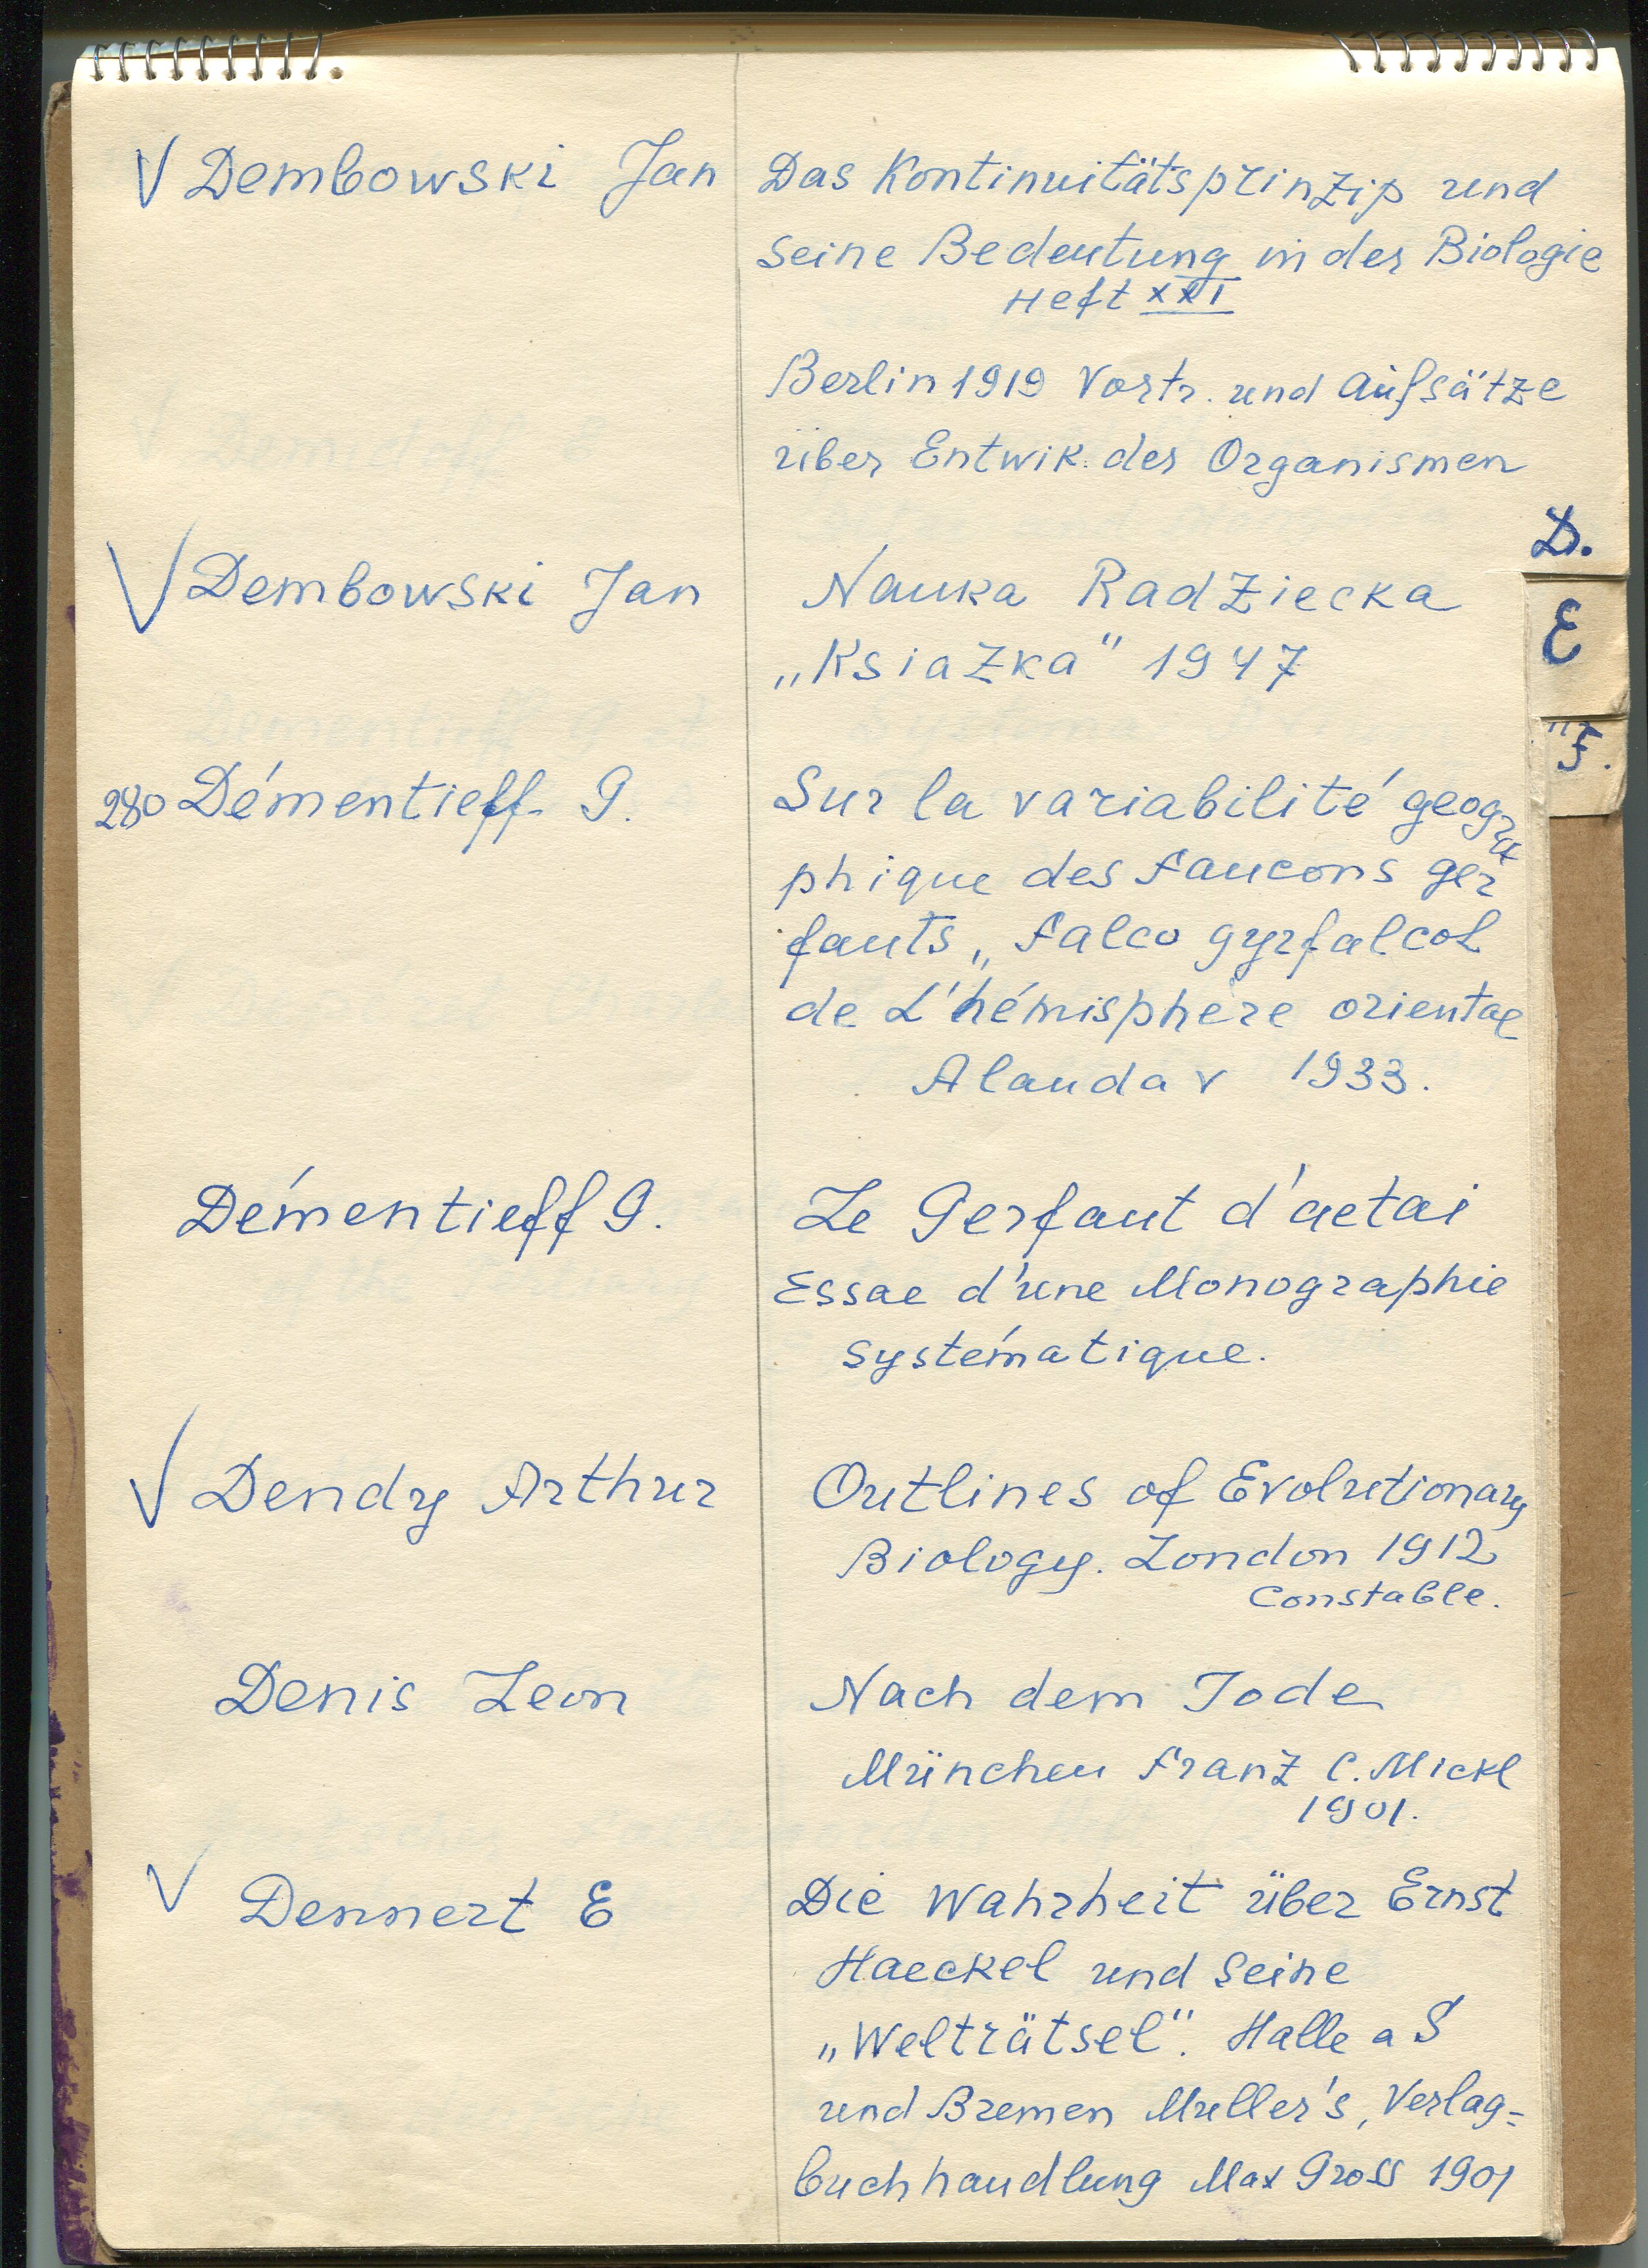 V Dembowski Jan Das Kontinuitätsprinzip und
seine Bedeutung in der Biologie
Heft XXI
Berlin 1919 Vortr. und Aufsätze
über Entwik. der Organismen
D.
V Dembowski Jan Nauka Radziecka
„Ksiazka" 1947
E
F.
280 Démentieff G. Sur la variabilité geogra
phique des Faucons ger
fauts „ Falco gyrfalcoL
de L'hémisphère oriental
Alauda V 1933.
Démentieff G. Le Gerfaut d'aetai
Essae d'une Monographie
systématique.
V Dendy Arthur Outlines of Evolutionary
Biology. London 1912
Constable.
Denis Leon Nach dem Tode
München Franz C. Mickl
1901.
V Dennert E Die Wahrheit über Ernst
Haeckel und Seine
„Welträtsel". Halle a S
und Bremen Muller's, Verlag=
buchhandlung Max Gross 1901